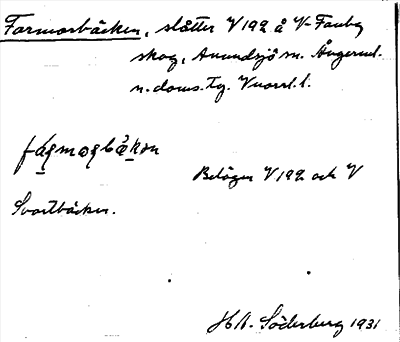 Farmorsbäcken, slåtter V 192 å V-Fanby
skog, Anundsjö sn. Ångerml.
n. doms. Tg. Vuorrl. l.
fágmoɡbǻkɐn
Belägen V 192 och V
Svartbäcken.
H A. Söderberg 1931